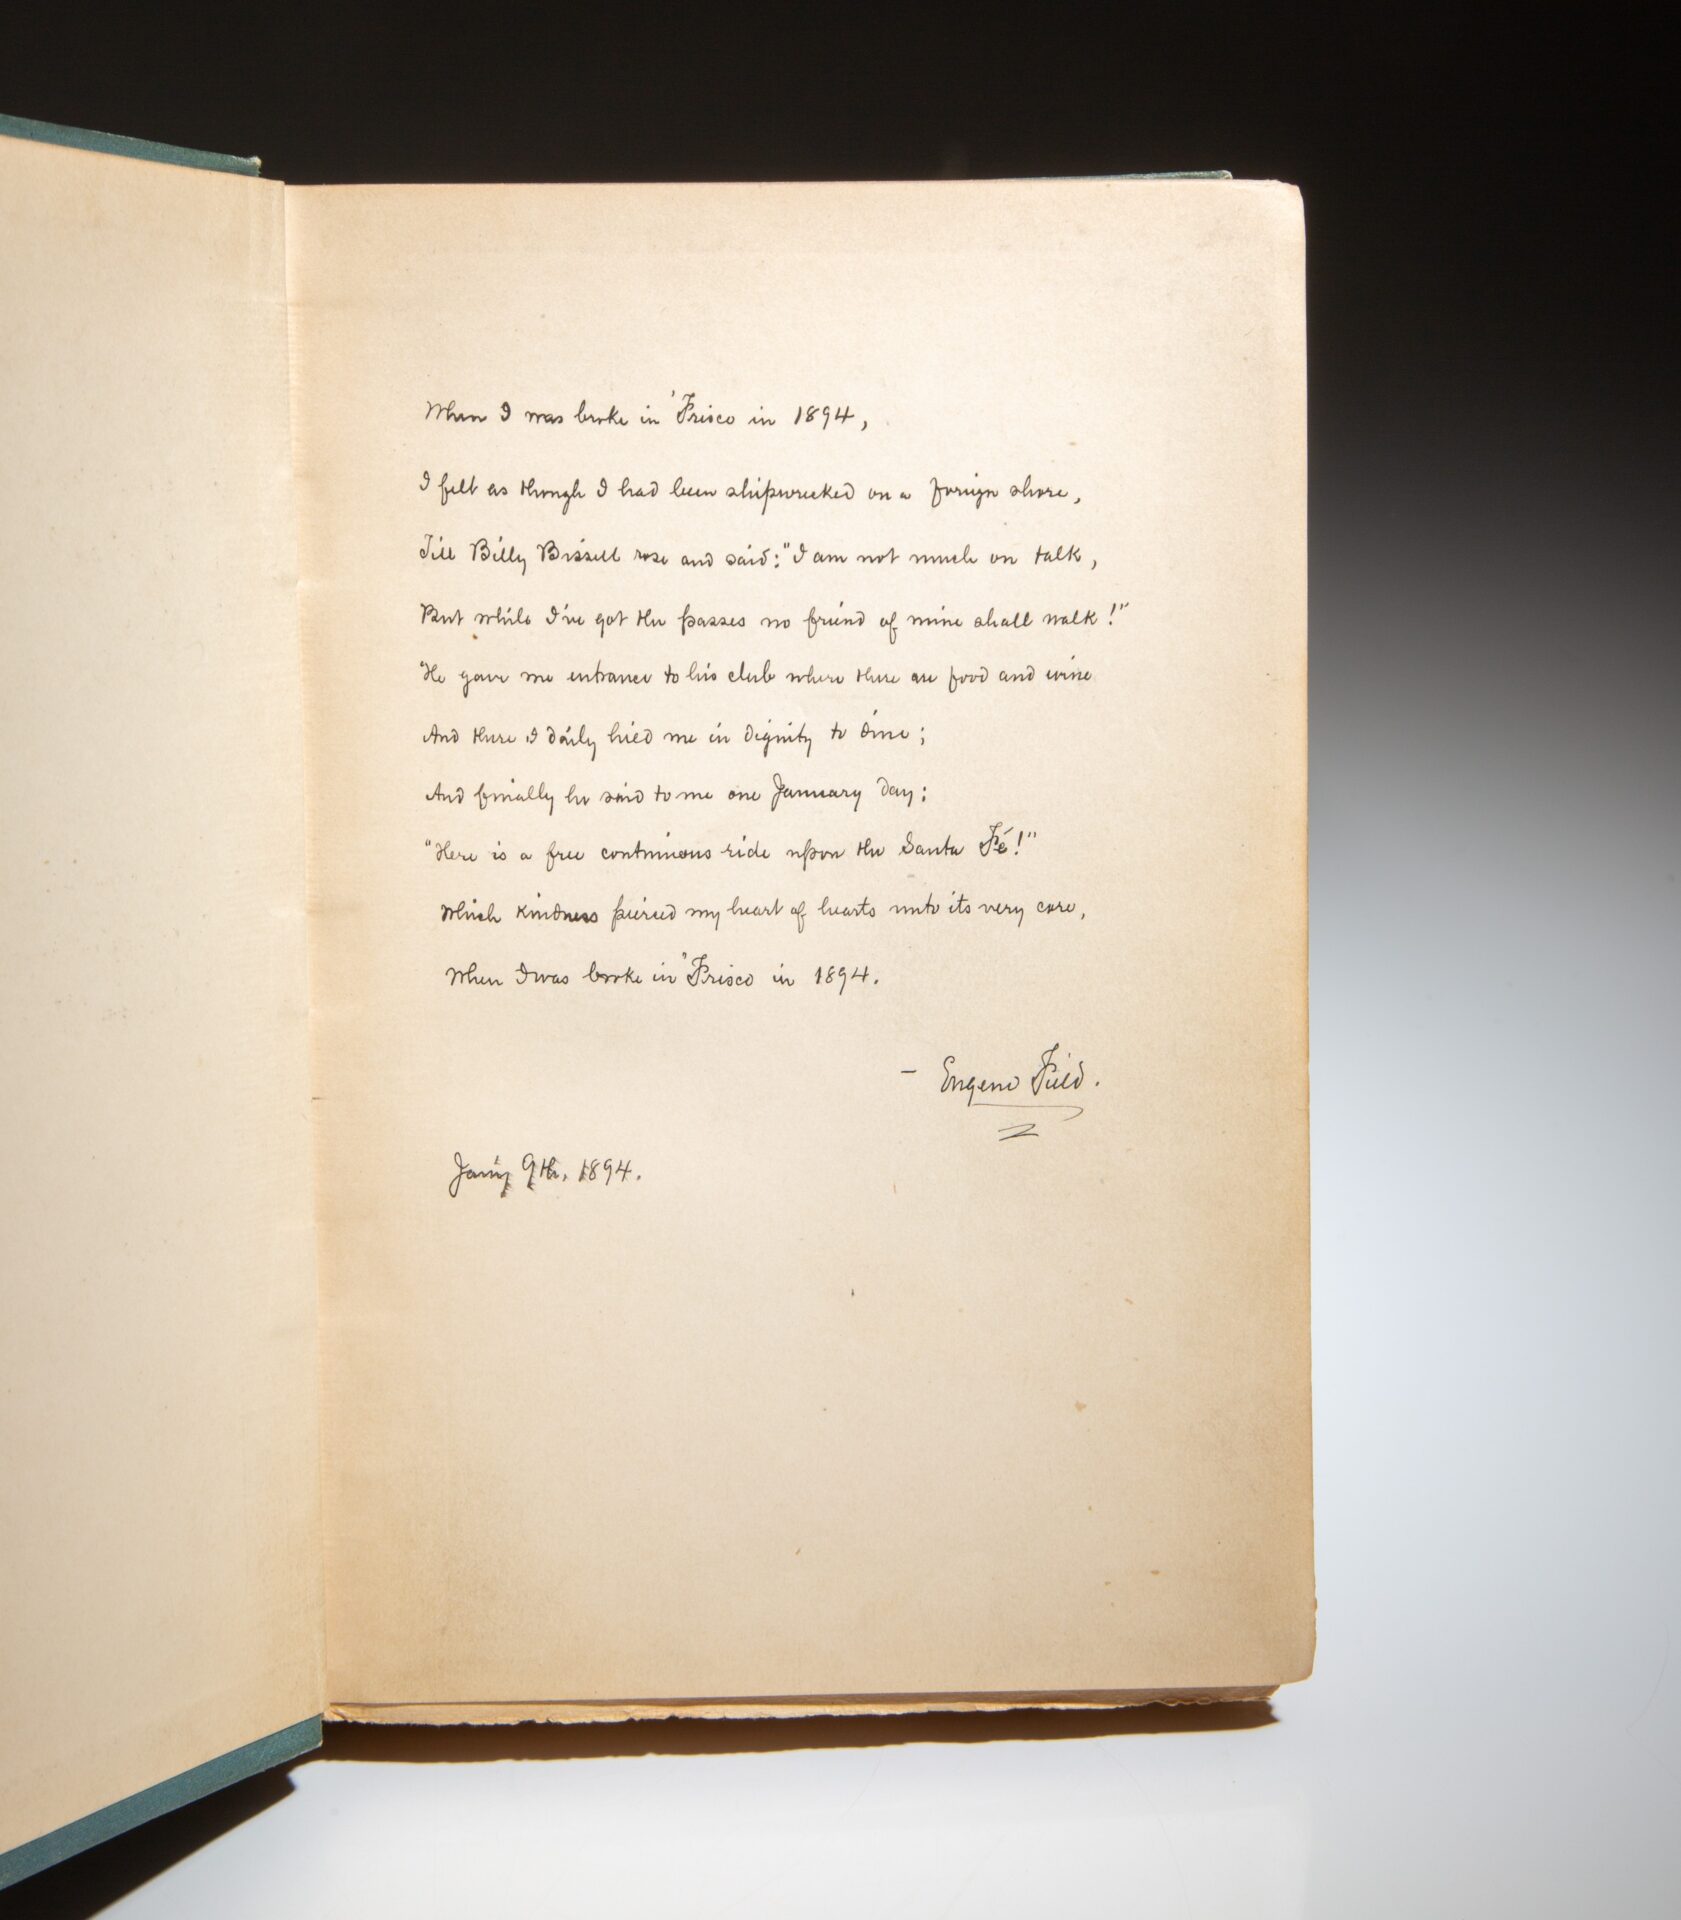 When I was broke in 'Frisco in 1894,
I felt as though I had been shipwrecked on a foreign shore,
Till Billy Bissell rose and said: "I am not much on talk,
But while I've got the passes no friend of mine shall walk!"
He gave me entrance to his club where there are food and wine
And there I daily hied me in dignity to dine;
And finally he said to me one January day:
"Here is a free continuous ride upon the Santa Fé!"
Which kindness pierced my heart of hearts unto its very core,
When I was broke in 'Frisco in 1894.
— Eugene Field.
Jan'y 9th, 1894.